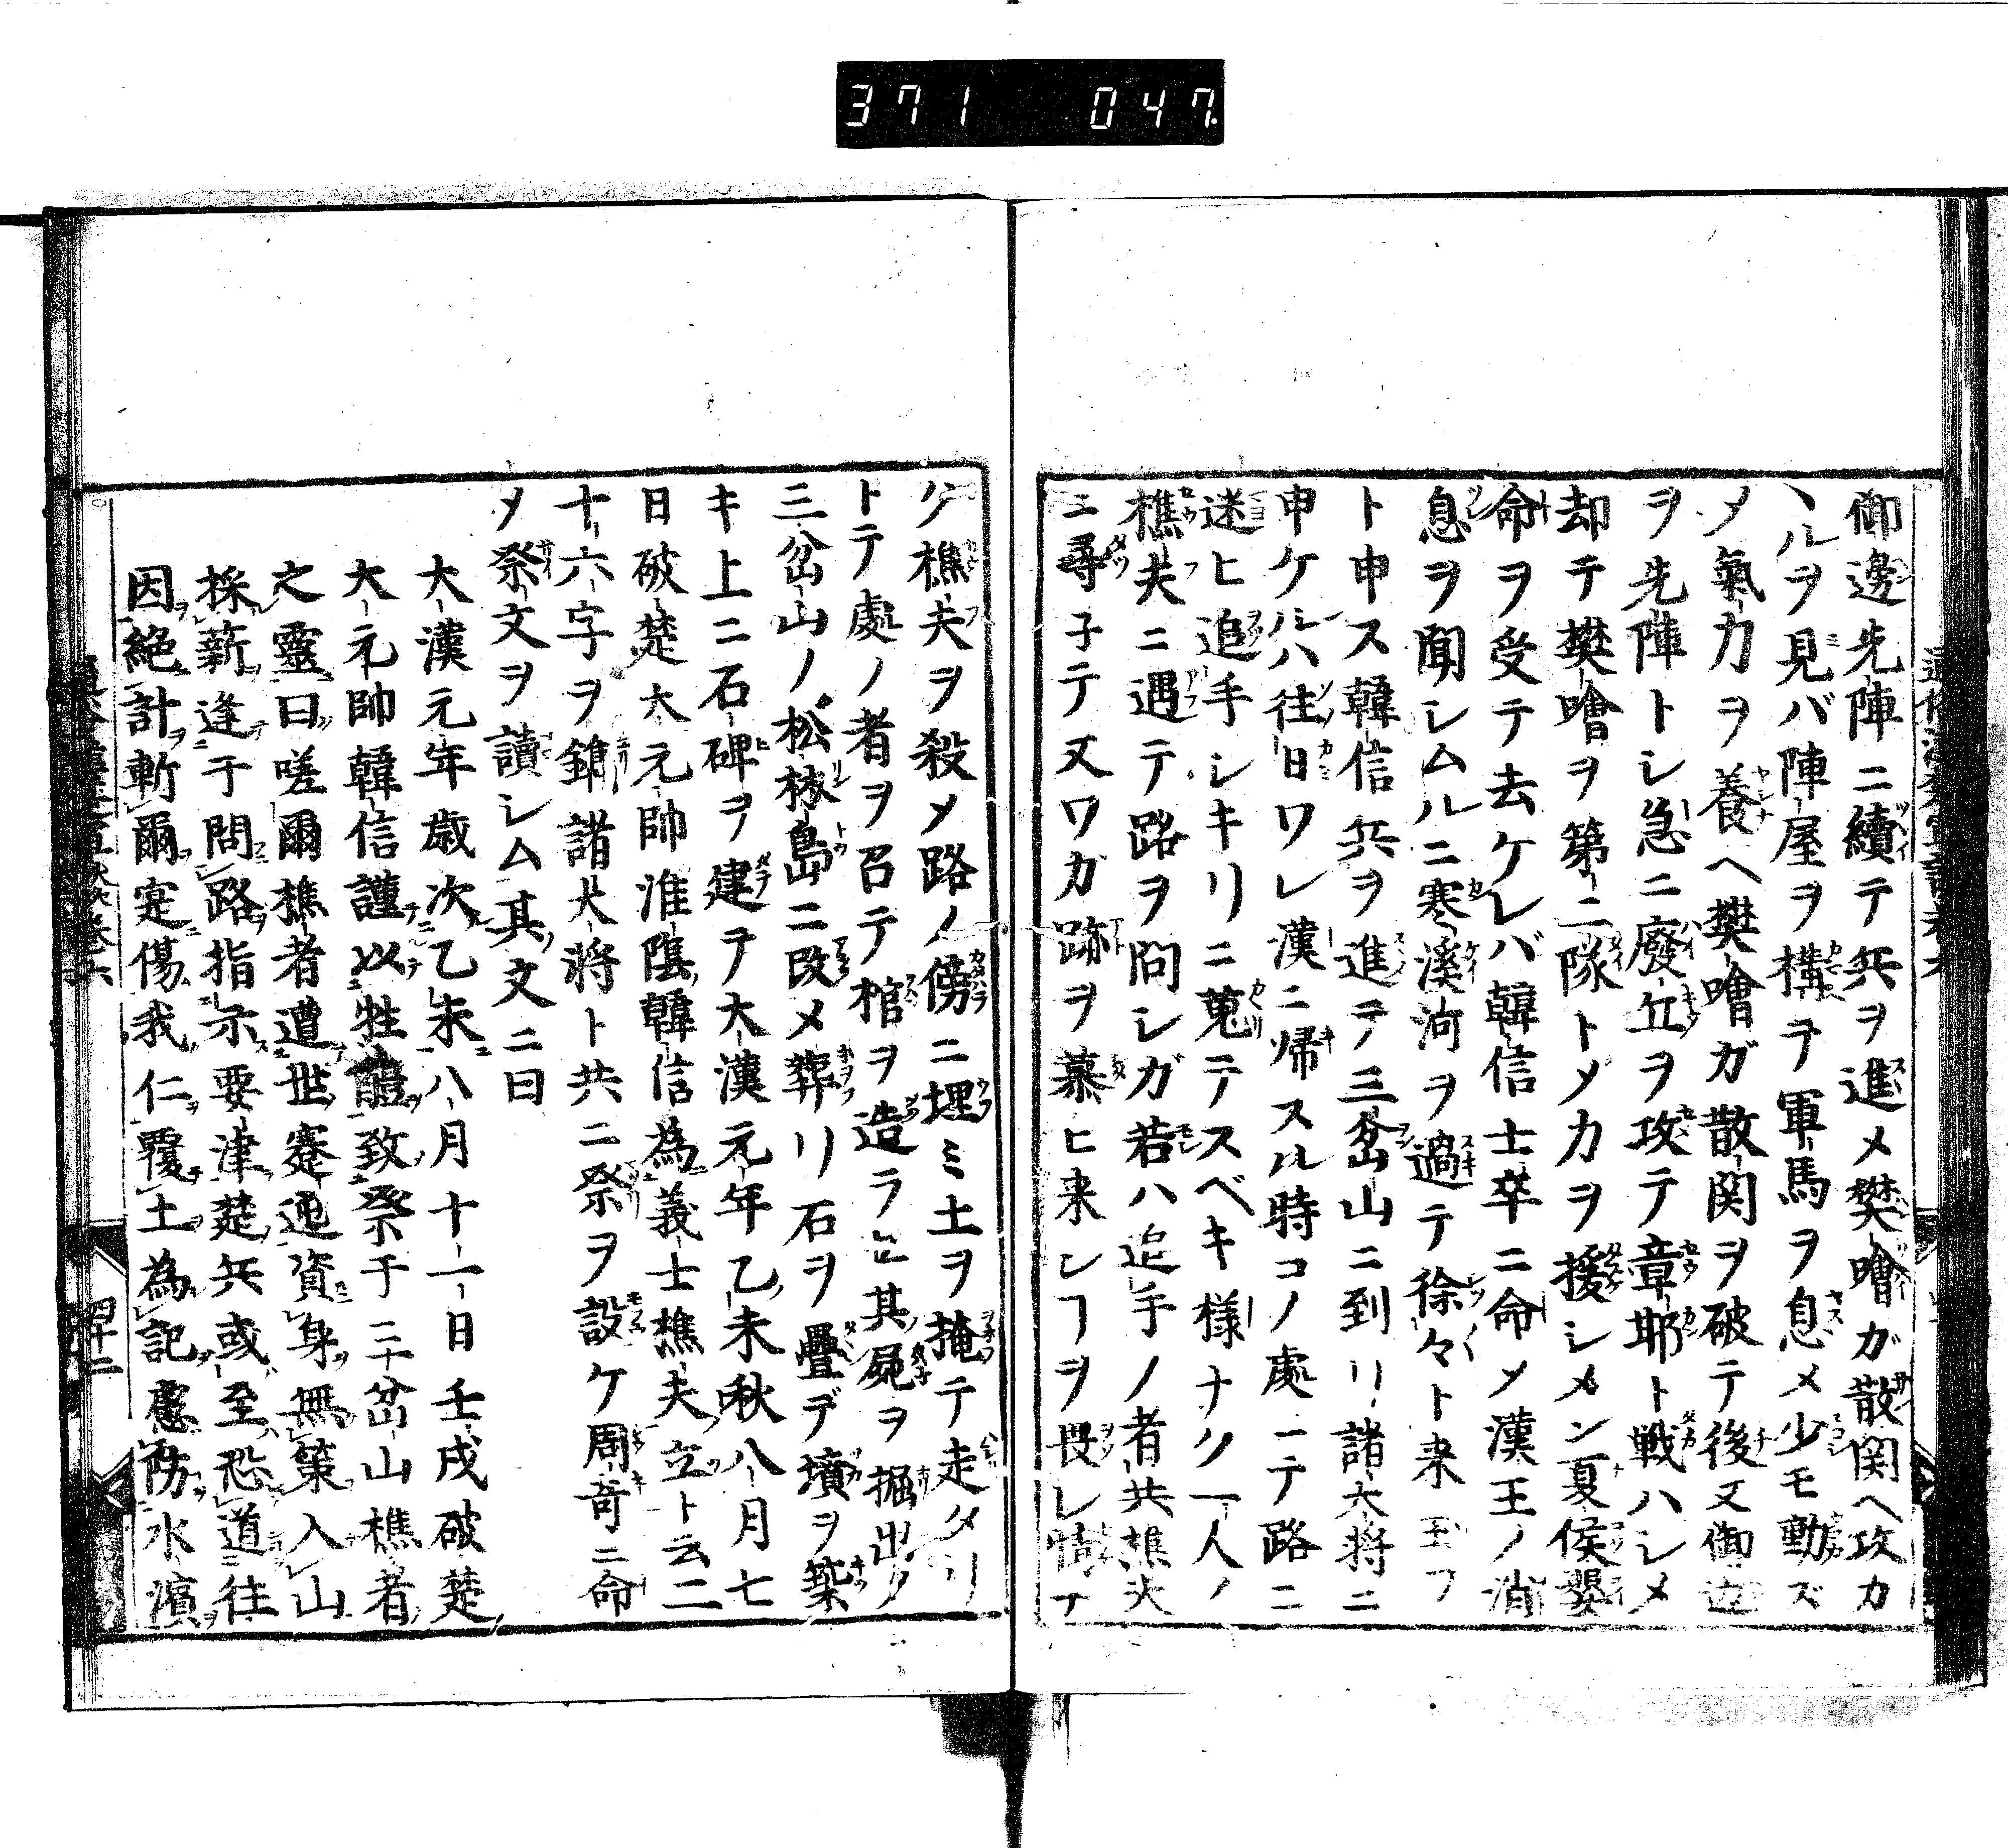 371 047
御邊先陣ニ續テ兵ヲ進メ樊噲ガ散関ヘ攻カ
ヽルヲ見バ陣屋ヲ構ヲ軍馬ヲ息メ少モ動ズ
メ氣力ヲ養ヘ樊噲ガ散関ヲ破テ後又御辺
ヲ先陣トシ急ニ廢丘ヲ攻テ章邯ト戦ハシメ
却テ樊噲ヲ第二隊トメカヲ援シメン夏侯嬰
命ヲ受テ去ケレバ韓信士卒ニ命メ漢王ノ消
息ヲ聞シムルニ寒溪河ヲ過テ徐々ト来玉フ
ト申ス韓信兵ヲ進テ三岔山ニ到リ諸大将ニ
申ケルハ往日ワレ漢ニ帰スル時コノ處ニテ路ニ
迷ヒ追手シキリニ蒐テスベキ様ナク一人ノ
樵夫ニ遇テ路ヲ問シガ若ハ追手ノ者共樵夫
ニ尋子テ又ワカ跡ヲ慕ヒ来レヿヲ畏レ情ナ
ク樵夫ヲ殺メ路ノ傍ニ埋ミ土ヲ掩テ走タリ
トテ處ノ者ヲ召テ棺ヲ造ラせ其屍ヲ掘出メ
三岔山ノ松林島ニ改メ葬リ石ヲ疊デ墳ヲ築
キ上ニ石碑ヲ建テ大漢元年乙未秋八月七
日破楚大元帥淮陰韓信為義士樵夫立ト云二
十六字ヲ鐫諸大将ト共ニ祭ヲ設ケ周苛ニ命
メ祭文ヲ讀シム其文ニ曰
大漢元年歳次乙未八月十一日壬戌破楚
大元帥韓信謹以牲醴致祭于三岔山樵者
之靈曰嗟爾樵者遭世蹇迍資身無策入山
採薪逢于問路指示要津楚兵或至恐道往
因絶計斬爾寔傷我仁覆土為記慮傍水濱
四十二